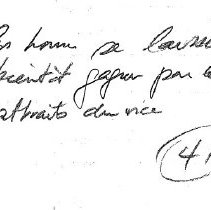 homme se laissa
bientôt gagner par
attraits du vice
4